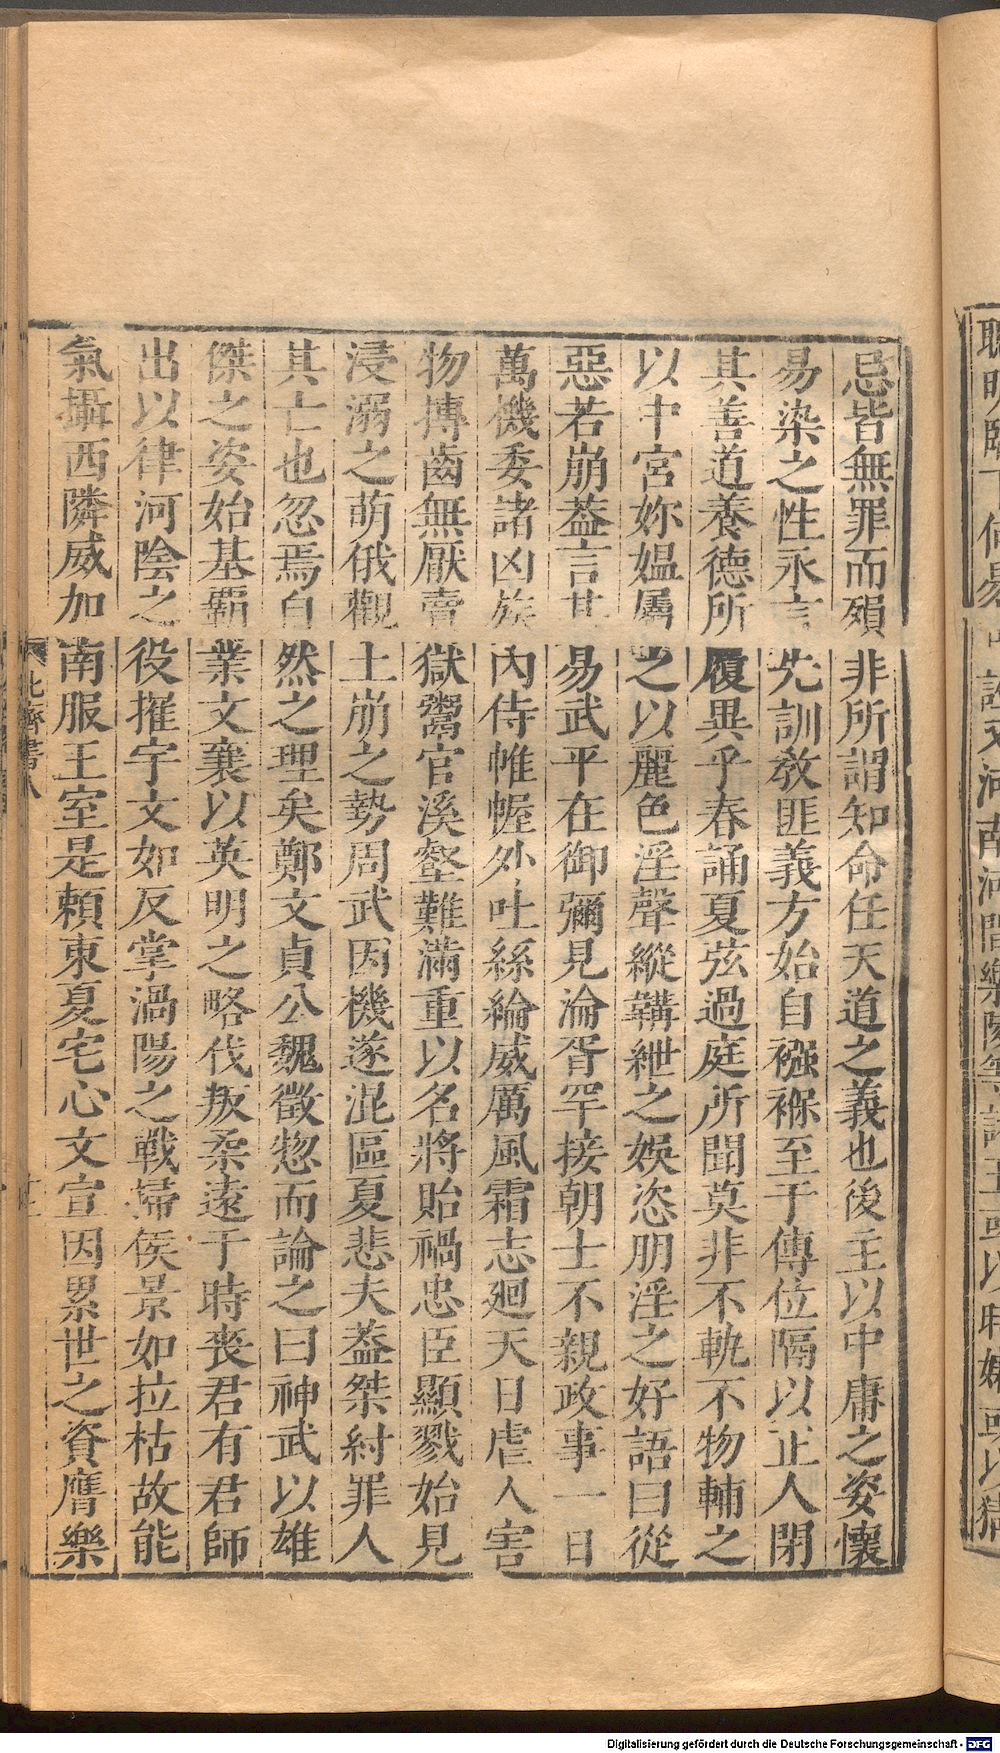 忌皆無罪而殞非所謂知命任天道之義也後主以中庸之姿懷
易染之性永言先訓教匪義方始自襁褓至于傳位隔以正人閉
其善道養德所履異乎春誦夏弦過庭所聞莫非不軌不物輔之
以中宮妳媼屬之以麗色淫聲縱韝紲之娛恣朋淫之好語曰從
惡若崩蓋言其易武平在御彌見淪胥罕接朝士不親政事一日
萬機委諸凶族內侍帷幄外吐絲綸威厲風霜志廻天日虐人害
物搏齒無厭賣獄鬻官溪壑難滿重以名將貽禍忠臣顯戮始見
浸溺之萌俄觀土崩之勢周武因機遂混區夏悲夫蓋桀紂罪人
其亡也忽焉自然之理矣鄭文貞公魏徵惣而論之曰神武以雄
傑之姿始基霸業文襄以英明之略伐叛柔遠于時喪君有君師
出以律河陰之役摧宇文如反掌渦陽之戰掃侯景如拉枯故能
氣攝西隣威加南服王室是賴東夏宅心文宣因累世之資膺樂
北齊書八
Digitalisierung gefördert durch die Deutsche Forschungsgemeinschaft - DFG